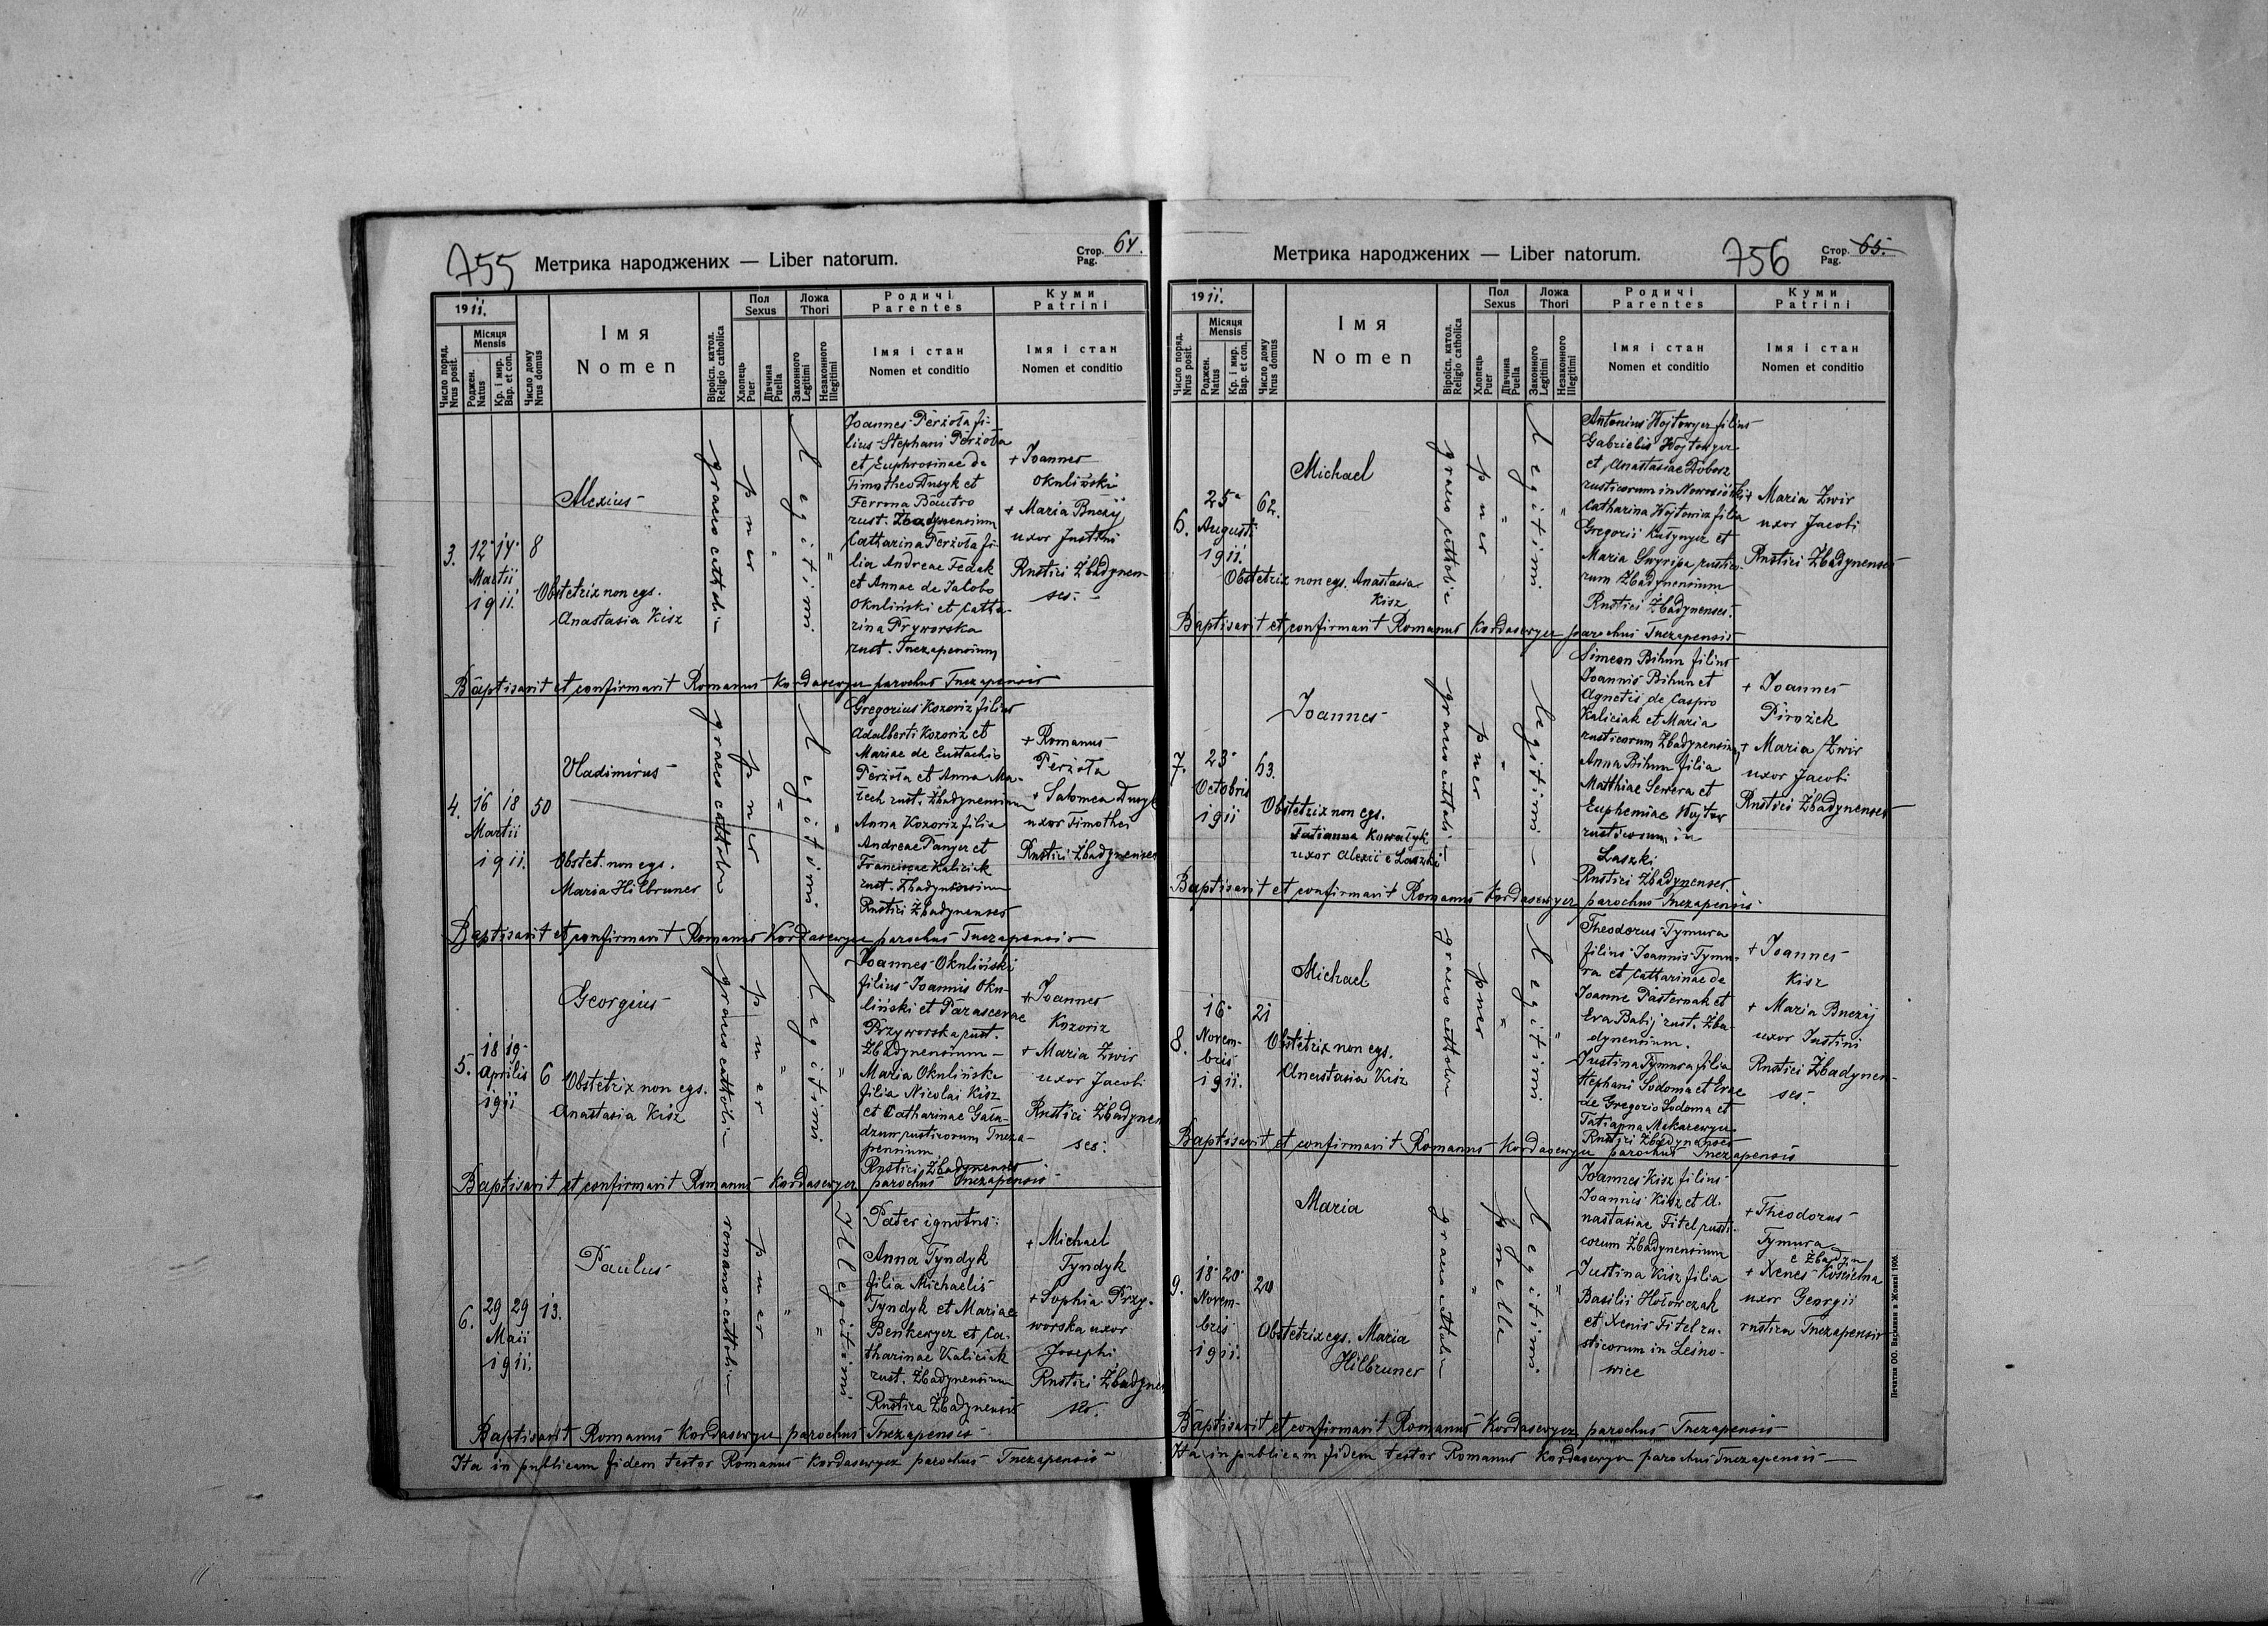 755
Метрика народжених — Liber natorum.
Стор. Pag. 64.
1911.
Число поряд. Nrus posit.
Місяця Mensis
Роджен. Natus
Кр. і мир. Bap. et con.
Число дому Nrus domus
Імя Nomen
Віроісп. катол. Religio catholica
Пол Sexus
Хлопець Puer
Дівчина Puella
Ложа Thori
Законного Legitimi
Незаконного Illegitimi
Родичі Parentes
Імя і стан Nomen et conditio
Куми Patrini
Імя і стан Nomen et conditio
3.
12. 14. 8
Martii
1911.
Alexius
Obstetrix non egs.
Anastasia Kisz
graeco catholic
puer
Legitimi
Joannes Perżoła fi-
lius Stephani Perżoła
et Euphrosinae de
Timotheo Dusyk et
rust. Żbadynensium
Catharina Perżoła fi-
lia Andreae Fedak
et Annae de Jacobo
Okuliński et Catha-
rina Pryworska
rust. Tuczapensium
+ Joannes
Okuliński
+ Maria Buczij
uxor Justini
Rustici Żbadynen-
ses.
Baptisavit et confirmavit Romanus Kordasewycz parochus Tuczapensis
4.
16 18 50
Martii
1911.
Vladimirus
Obstet. non egs.
Maria Hilbruner
graeco catholic
puer
Legitimi
Gregorius Kozoriz filius
Adalberti Kozoriz et
Mariae de Eustachio
Perżoła et Anna Ma-
zech rust. Żbadynensium
Anna Kozoriz filia
Andreae Panycz et
Franciscae Kaliciak
rust. Żbadynensium
Rustici Żbadynenses
+ Romanus
Perżoła
+ Salomea Dusyk
uxor Timothei
Rustici Żbadynenses
Baptisavit et confirmavit Romanus Kordasewycz parochus Tuczapensis
5.
18 19
Aprilis 6
1911
Georgius
Obstetrix non egs.
Anastasia Kisz
graeco catholic
puer
Legitimi
Joannes Okuliński
filius Joannis Oku-
liński et Parascevae
Przyworska rust.
Żbadynensium
Maria Okulińska
filia Nicolai Kisz
et Catharinae Gała-
dzun rusticorum Tucza-
pensium
Rustici Żbadynenses
+ Joannes
Kozoriz
+ Maria Żwir
uxor Jacobi
Rustici Żbadynen
ses.
Baptisavit et confirmavit Romanus Kordasewycz parochus Tuczapensis
6.
29 29 13.
Maii
1911.
Paulus
romano-catholic
puer
Illegitimi
Pater ignotus.
Anna Tyndyk
filia Michaelis
Tyndyk et Mariae
Benkewycz et Ca-
tharinae Kaliciak
rust. Żbadynensium
Rustica Żbadynensis
+ Michael
Tyndyk
+ Sophia Przy-
worska uxor
Josephi
Rustici Żbadynen
ses.
Baptisavit Romanus Kordasewycz parochus Tuczapensis
Ita in publicam fidem testor Romanus Kordasewycz parochus Tuczapensis
756
Метрика народжених — Liber natorum.
Стор. Pag. 65.
1911.
Число поряд. Nrus posit.
Місяця Mensis
Роджен. Natus
Кр. і мир. Bap. et con.
Число дому Nrus domus
Імя Nomen
Віроісп. катол. Religio catholica
Пол Sexus
Хлопець Puer
Дівчина Puella
Ложа Thori
Законного Legitimi
Незаконного Illegitimi
Родичі Parentes
Імя і стан Nomen et conditio
Куми Patrini
Імя і стан Nomen et conditio
6.
25 62.
Augusti
1911.
Michael
Obstetrix non egs. Anastasia
Kisz
graeco catholic
puer
Legitimi
Antonius Wojtowycz filius
Gabrielis Wojtowycz
et Anastasiae Dobosz
rusticorum in
Catharina Wojtowicz filia
Gregorii et
Maria rustico-
rum Żbadynensium
Rustici Żbadynenses.
+ Maria Żwir
uxor Jacobi
Rustici Żbadynenses
Baptisavit et confirmavit Romanus Kordasewycz parochus Tuczapensis
7.
23 63.
Octobris
1911
Joannes
Obstetrix non egs.
Tatianna Kowałyk
uxor Alexii e Laszki
graeco catholic
puer
Legitimi
Simeon Bihun filius
Joannis Bihun et
Agnetis de Caspro
Kaliciak et Maria
rusticorum Żbadynensium
Anna Bihun filia
Matthiae Sewera et
Euphemiae Wojtow
rusticorum in
Laszki
Rustici Żbadynenses.
+ Joannes
Pirożek
+ Maria Żwir
uxor Jacobi
Rustici Żbadynenses
Baptisavit et confirmavit Romanus Kordasewycz parochus Tuczapensis
8.
16 21
Novem-
bris
1911.
Michael
Obstetrix non egs.
Anastasia Kisz
graeco catholic
puer
Legitimi
Theodorus Tymura
filius Joannis Tymu-
ra et Catharinae de
Joanne Pasternak et
Eva Babij rust. Żba-
dynensium.
Justina Tymura filia
Stephani Sodoma et Evae
de Gregorio Sodoma et
Tatianna Makarewycz
Rustici Żbadynenses
+ Joannes
Kisz
+ Maria Buczij
uxor Justini
Rustici Żbadynen-
ses.
Baptisavit et confirmavit Romanus Kordasewycz parochus Tuczapensis
9.
18 20 20
Novem-
bris
1911.
Maria
Obstetrix egs. Maria
Hilbruner
graeco catholic
puella
Legitimi
Joannes Kisz filius
Joannis Kisz et A-
nastasiae Fitel rusti-
corum Żbadynensium
Justina Kisz filia
Basilii Hołowczak
et Xenis Fitel ru-
sticorum in Leśno-
wice
+ Theodorus
Tymura
e Żbadyn
+ Xenes Kościelna
uxor Georgii
rustica Tuczapensis
Baptisavit et confirmavit Romanus Kordasewycz parochus Tuczapensis
Ita in publicam fidem testor Romanus Kordasewycz parochus Tuczapensis
Печатня ОО. Василиян в Жовкві 1906.